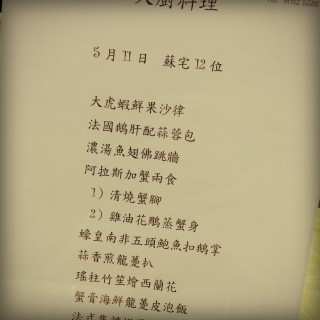 大廚料理
5月11日 蘇宅12位
大虎蝦鮮果沙律
法國鵝肝配蒜蓉包
濃湯魚翅佛跳牆
阿拉斯加蟹兩食
1）清燒蟹腳
2）雞油花鵰蒸蟹身
蠔皇南非五頭鮑魚扣鵝掌
蒜香煎龍躉扒
瑤柱竹笙燴西蘭花
蟹膏海鮮龍躉皮泡飯
法式